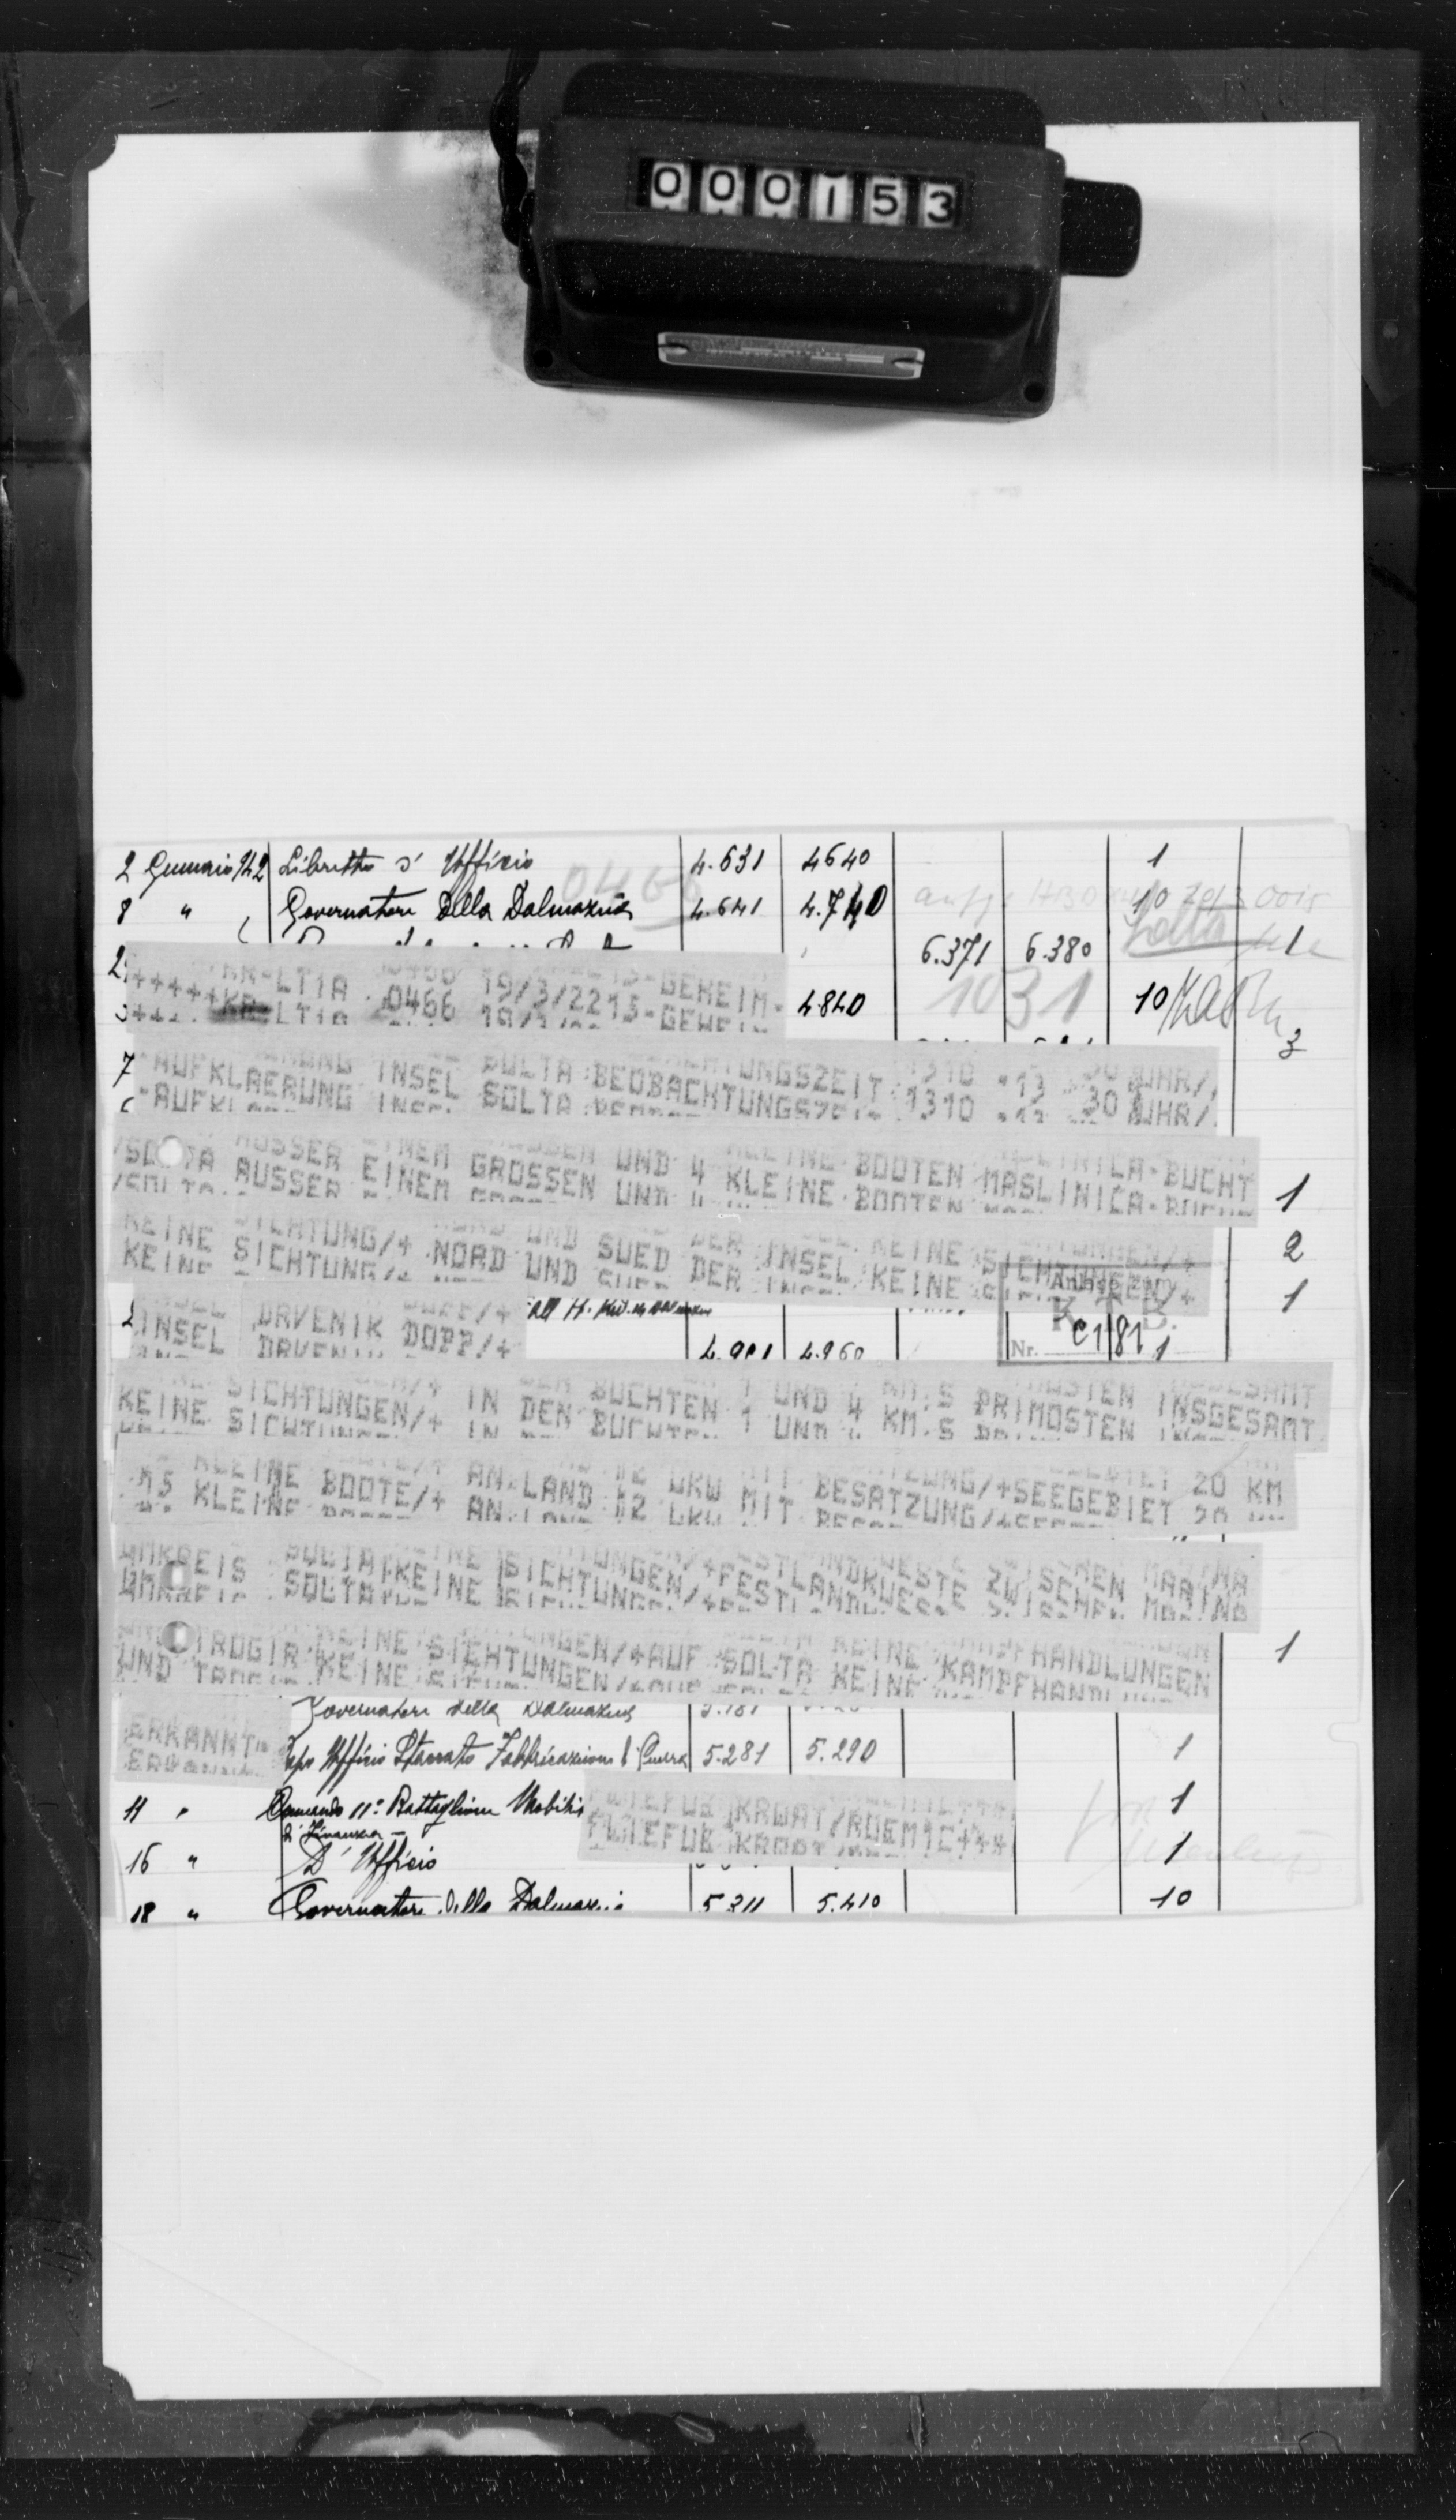 000153
2 Gennaio 942 Libretto d' Ufficio 4.631 4640 1
0466
8 " Governatore Della Dalmazia 4.641 4.740 10
6.371 6.380 1
+++++KR-LT1A 0466 19/3/2215-GEHEIM-
4.840 1031 10
3
7
-AUFKLAERUNG INSEL SOLTA BEOBACHTUNGSZEIT 1310 -13 30 UHR/
/SOLTA AUSSER EINEM GROSSEN UND 4 KLEINE BOOTEN MASLINICA-BUCHT
1
KEINE SICHTUNG/+ NORD UND SUED DER INSEL KEINE SICHTUNGEN/+
2
1
K.T.B.
INSEL DRVENIK DOPP/+
Nr. C1181 1
4.960
KEINE SICHTUNGEN/+ IN DEN BUCHTEN 1 UND 4 KM S PRIMOSTEN INSGESAMT
15 KLEINE BOOTE/+ AN LAND 12 LKW MIT BESATZUNG/+SEEGEBIET 20 KM
UMKREIS SOLTA KEINE SICHTUNGEN/+FESTLANDKUESTE ZWISCHEN MARINA
UND TROGIR KEINE SICHTUNGEN/+AUF SOLTA KEINE KAMPFHANDLUNGEN
1
Governatore della Dalmazia
ERKANNT-
Ufficio Staccato Fabbricazioni Guerra 5.281 5.290 1
11 " Comando 11° Battaglione Mobilit 1
di Finanza
FLIEFUE KROAT/ROEM1C+++
16 " D' Ufficio 1
18 " Governatore Della Dalmazia 5.311 5.410 10